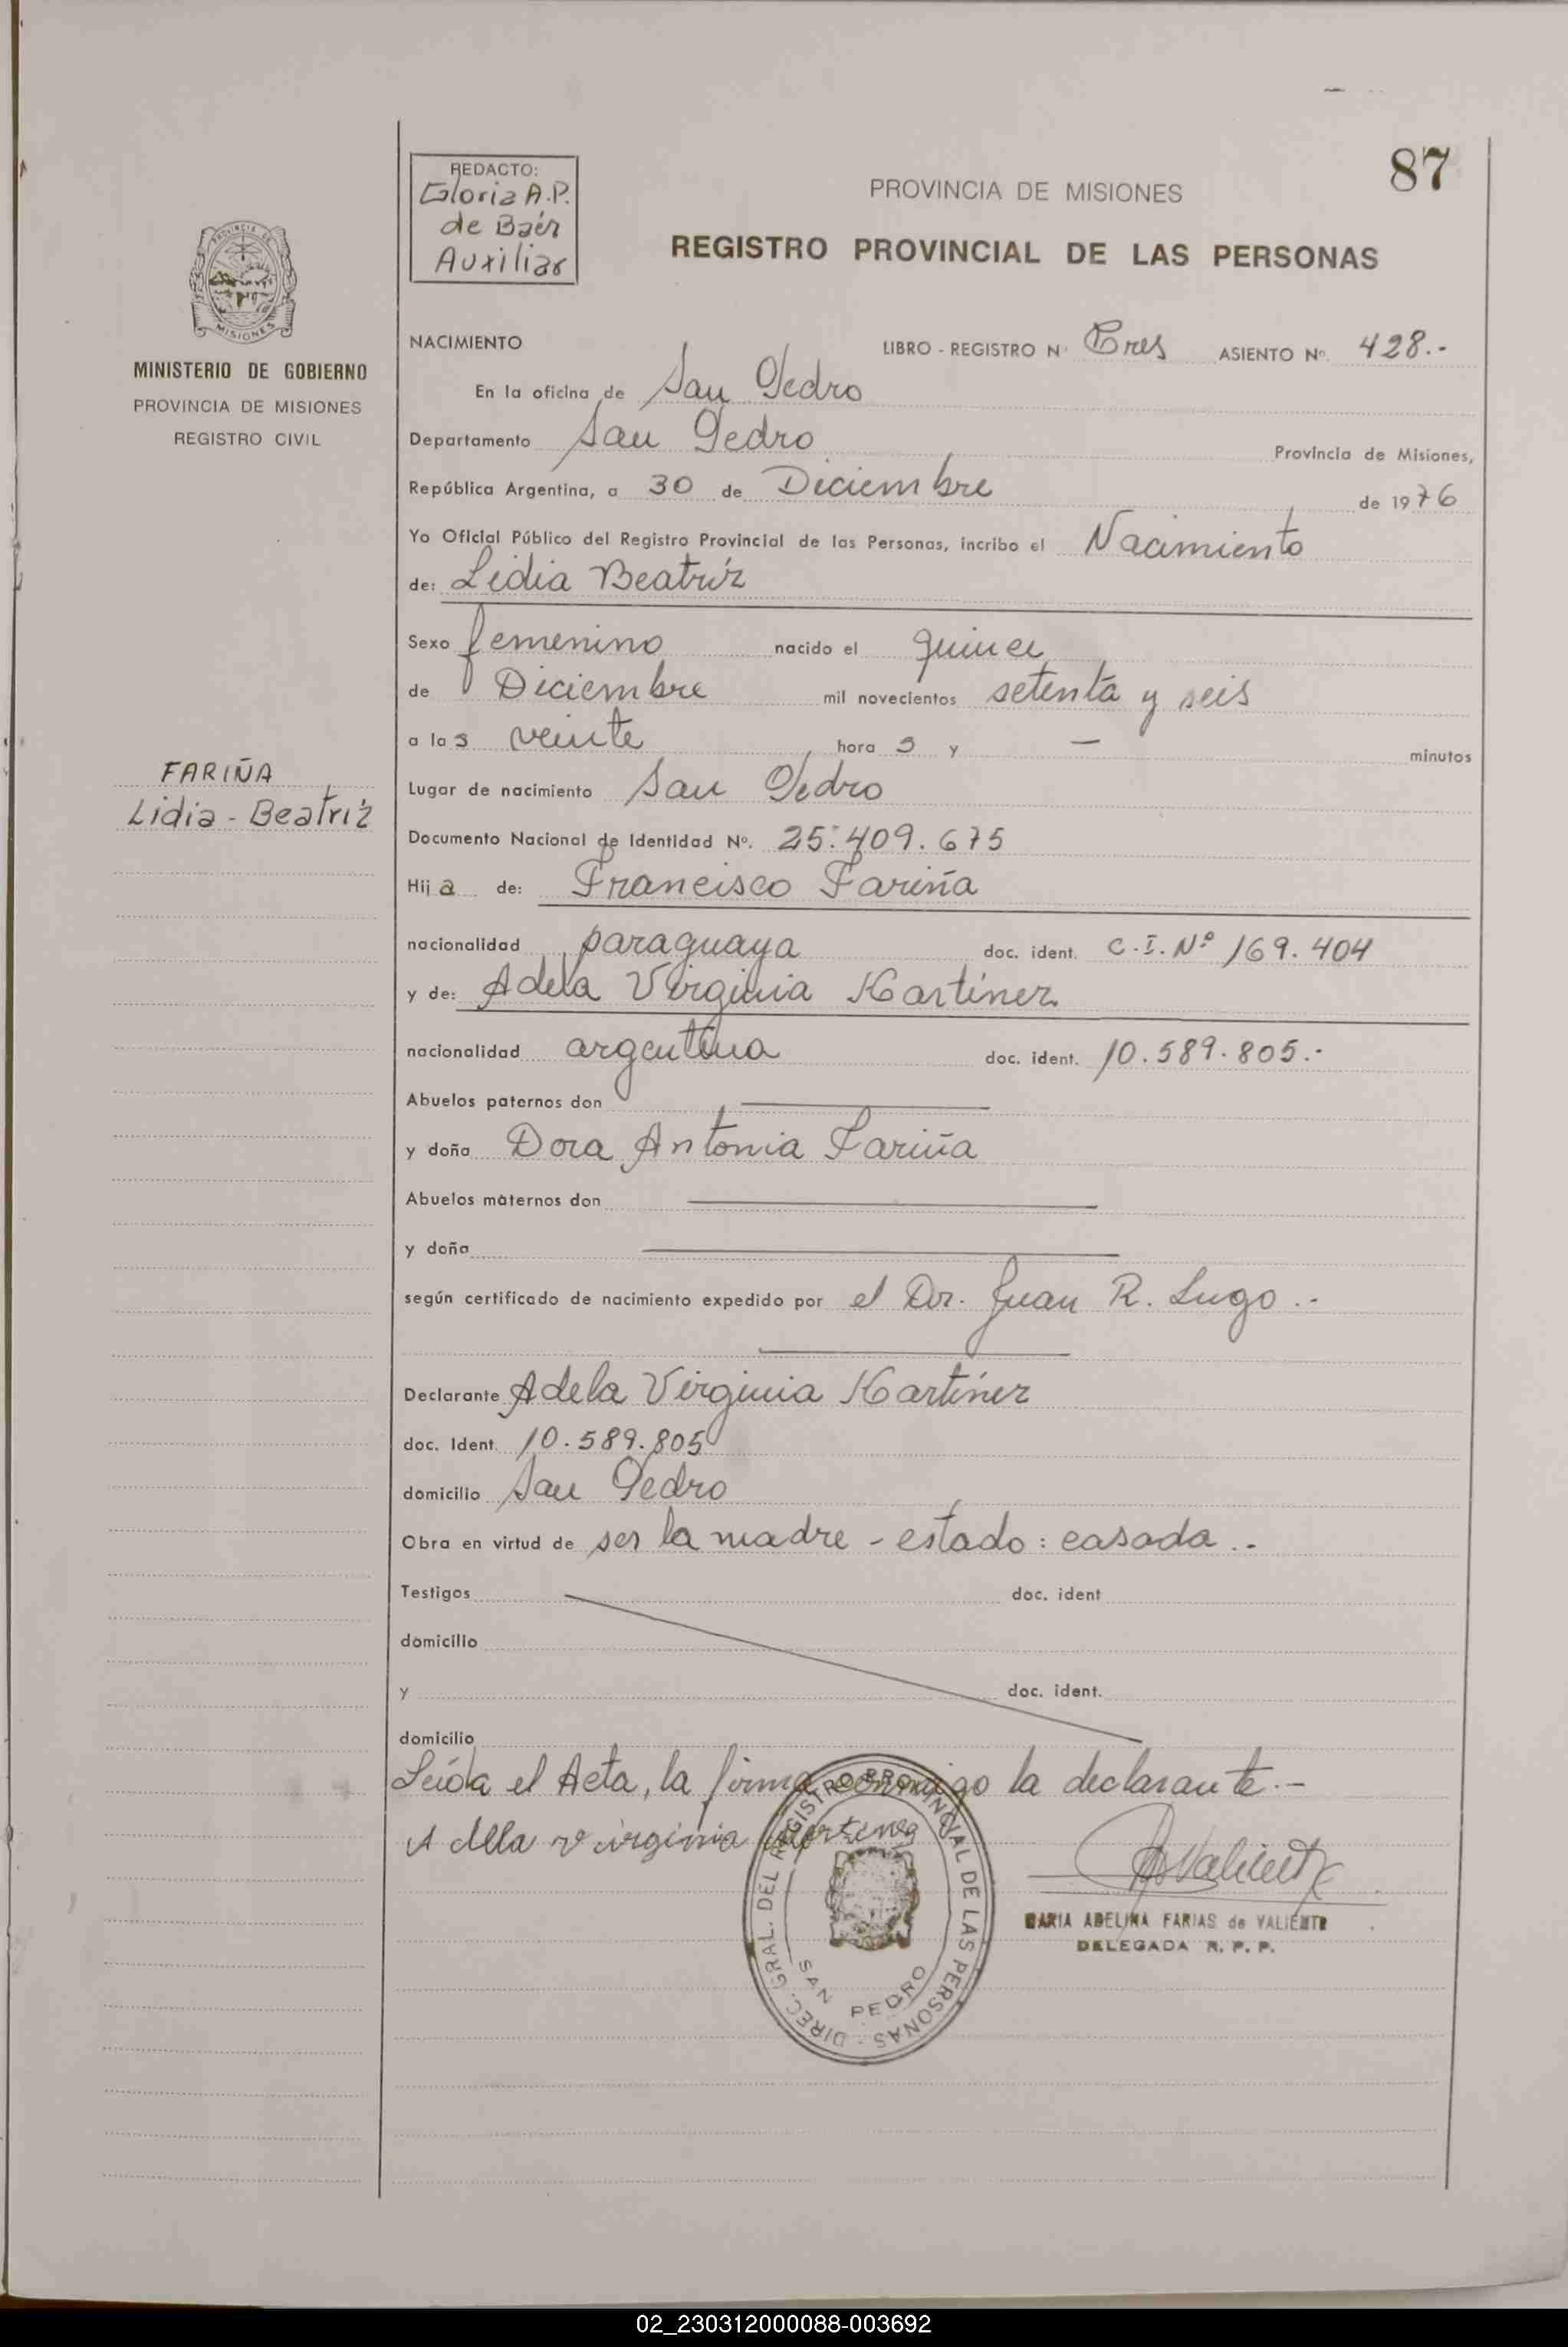 87
REDACTO:
Gloria A.P.
de Baér
Auxiliar
PROVINCIA DE MISIONES
REGISTRO PROVINCIAL DE LAS PERSONAS
PROVINCIA DE
MISIONES
MINISTERIO DE GOBIERNO
PROVINCIA DE MISIONES
REGISTRO CIVIL
NACIMIENTO LIBRO - REGISTRO Nº Tres ASIENTO Nº. 428.-
En la oficina de San Pedro
Departamento San Pedro Provincia de Misiones,
República Argentina, a 30 de Diciembre de 1976
Yo Oficial Público del Registro Provincial de las Personas, incribo el Nacimiento
de: Lidia Beatríz
Sexo femenino nacido el quince
de Diciembre mil novecientos setenta y seis
a las veinte horas y — minutos
FARIÑA
Lidia - Beatriz
Lugar de nacimiento San Pedro
Documento Nacional de Identidad Nº. 25.409.675
Hija de: Francisco Fariña
nacionalidad paraguaya doc. ident. C.I. Nº 169.404
y de: Adela Virginia Martínez
nacionalidad argentina doc. ident. 10.589.805.-
Abuelos paternos don
y doña Dora Antonia Fariña
Abuelos maternos don
y doña
según certificado de nacimiento expedido por el Dr. Juan R. Lugo.-
Declarante Adela Virginia Martínez
doc. Ident. 10.589.805
domicilio San Pedro
Obra en virtud de ser la madre - estado: casada.-
Testigos doc. ident
domicilio
y doc. ident.
domicilio
Leída el Acta, la firma conmigo la declarante.-
Adela virginia martinez
Valiente
MARIA ADELINA FARIAS de VALIENTE
DELEGADA R. P. P.
DIREC. GRAL. DEL REGISTRO PROVINCIAL DE LAS PERSONAS -
SAN PEDRO
02_230312000088-003692